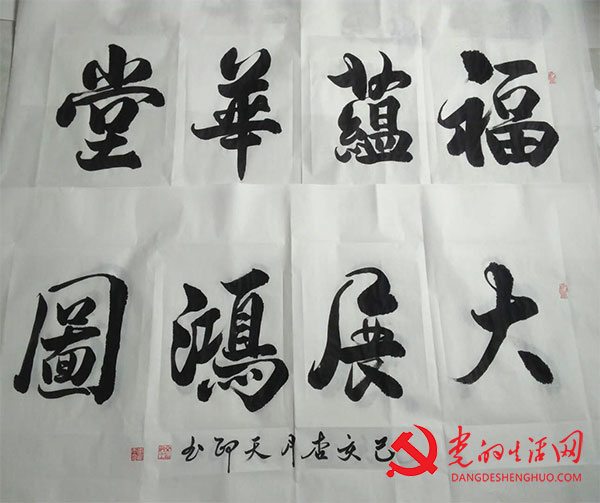 福蘊華堂
大展鴻圖
己亥杏月天印书
党的生活网
DANGDESHENGHUO.COM